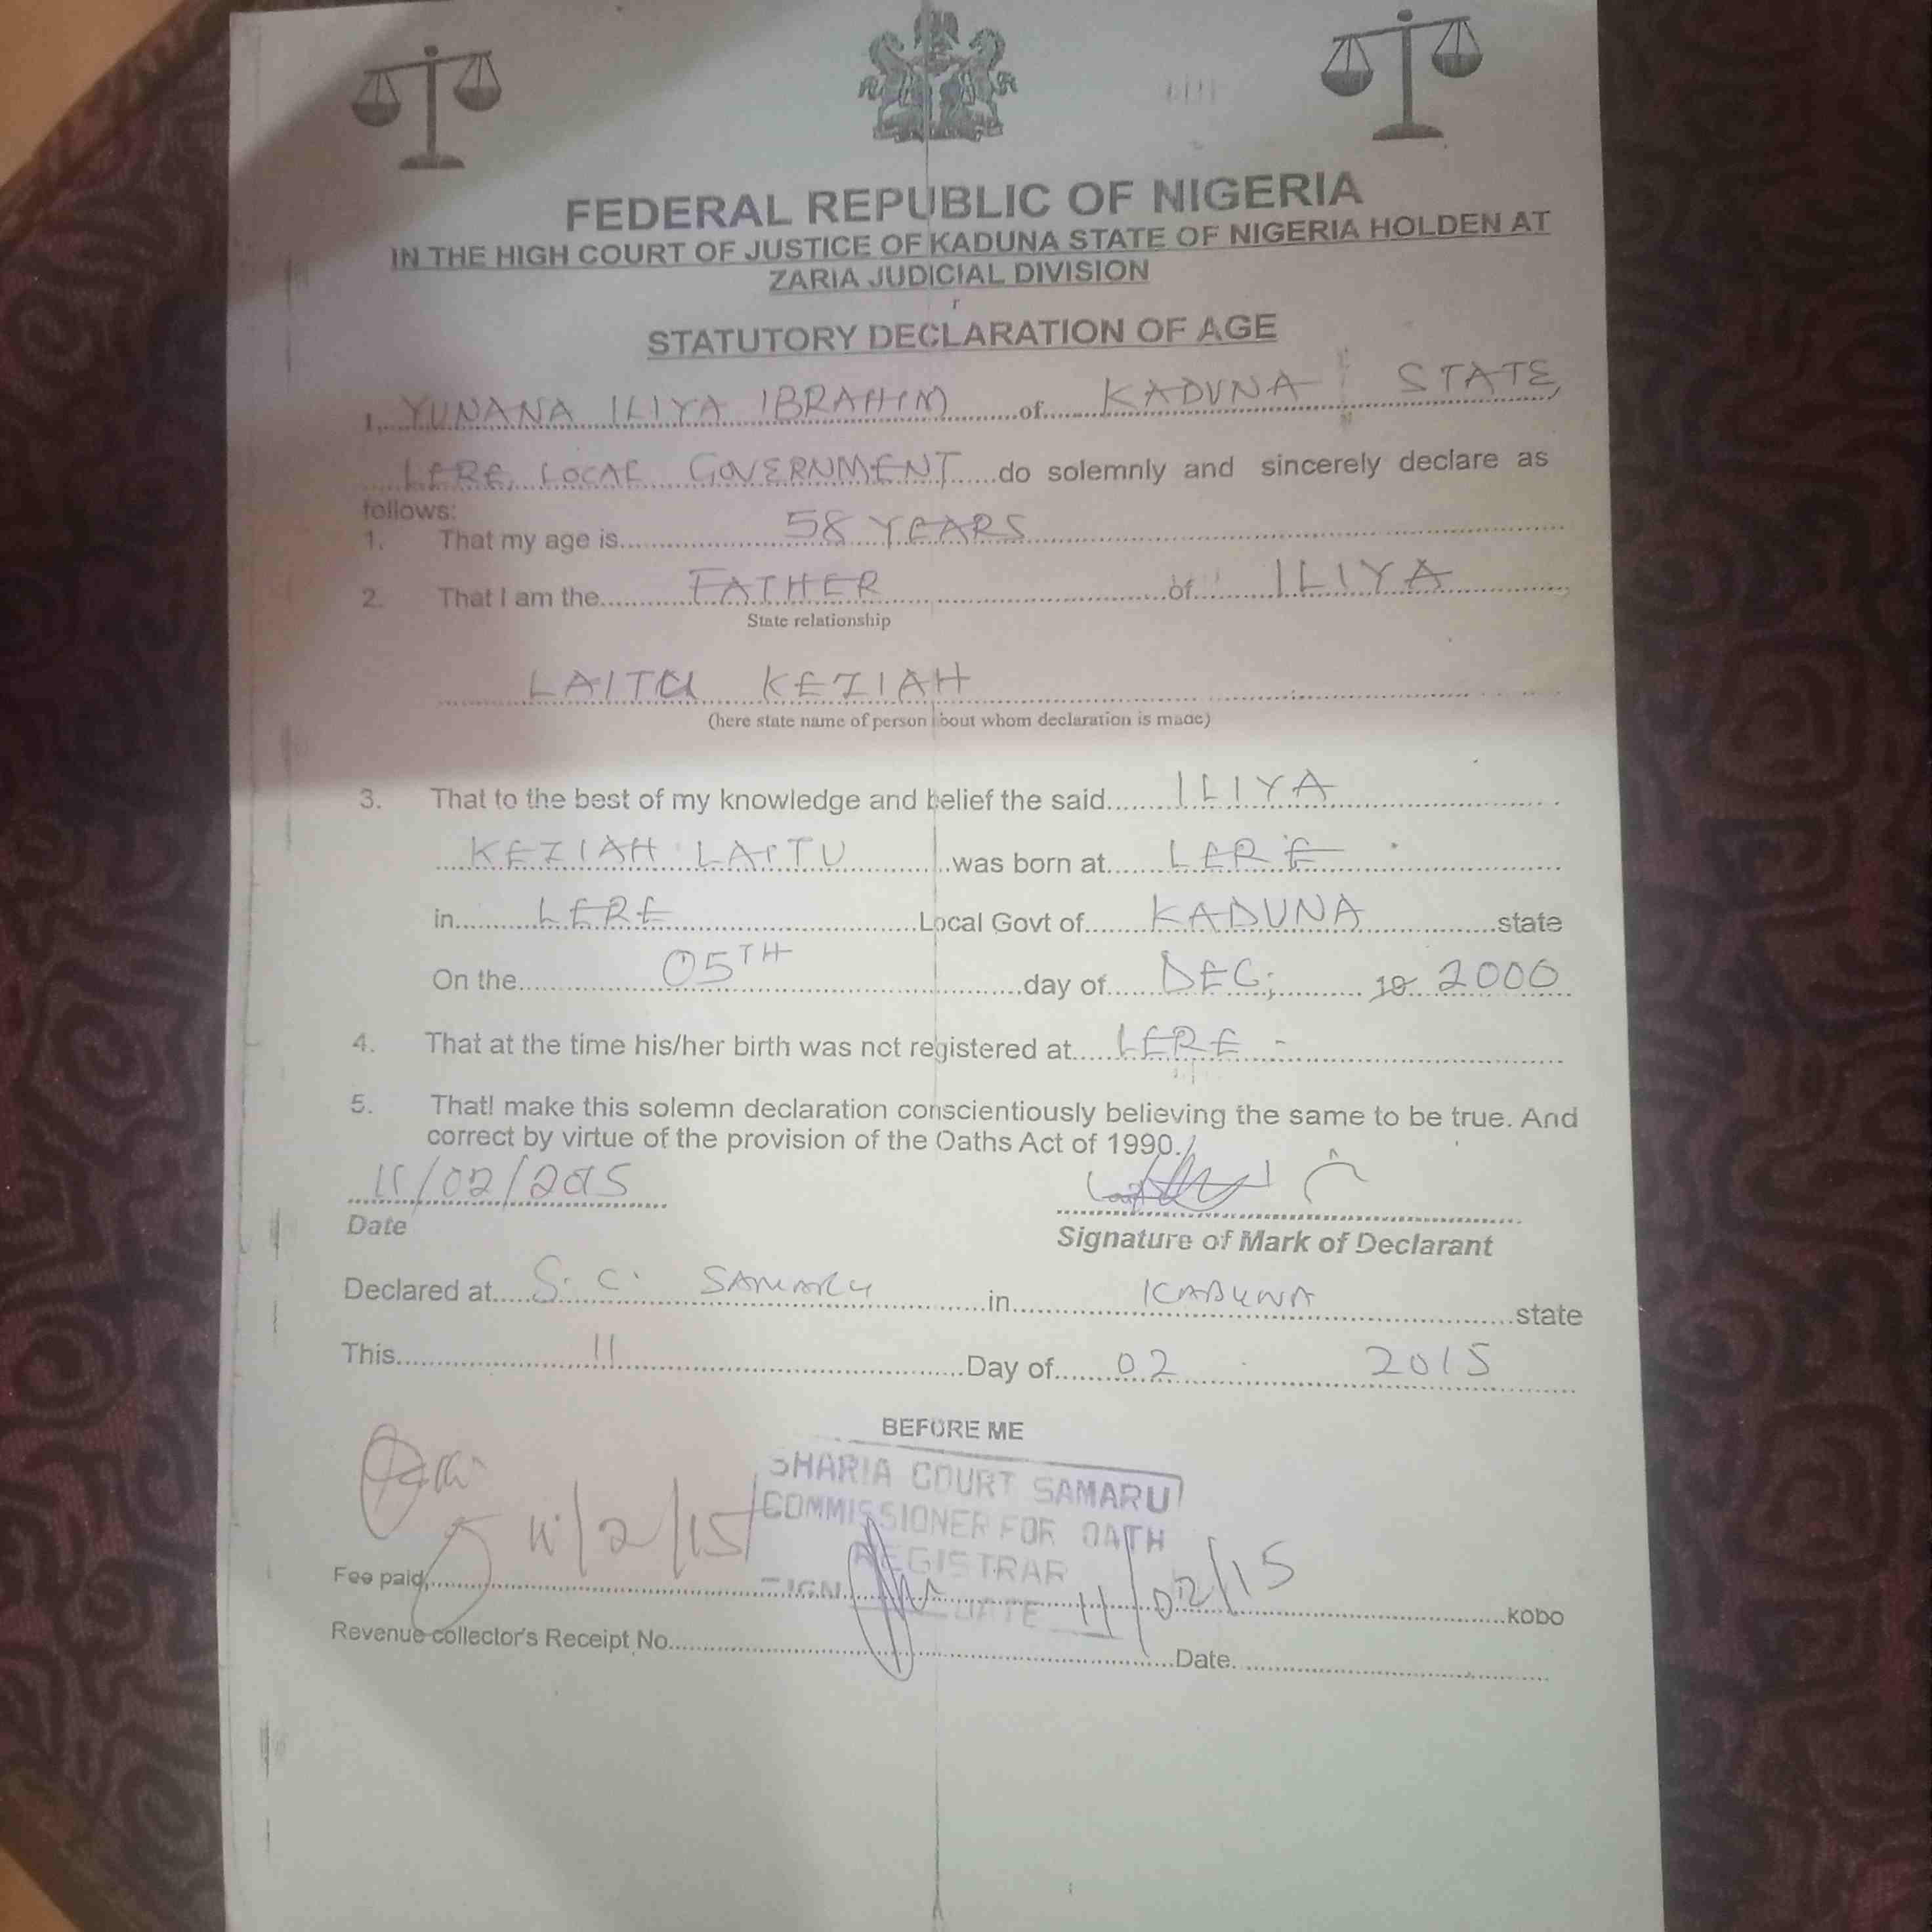 FEDERAL REPUBLIC OF NIGERIA
IN THE HIGH COURT OF JUSTICE OF KADUNA STATE OF NIGERIA HOLDEN AT
ZARIA JUDICIAL DIVISION
STATUTORY DECLARATION OF AGE
I, YUNANA ILIYA IBRAHIM of KADUNA STATE,
LERE LOCAL GOVERNMENT do solemnly and sincerely declare as
follows:
1. That my age is 58 YEARS
2. That I am the FATHER of ILIYA
State relationship
LAITU KEZIAH
(here state name of person bout whom declaration is made)
3. That to the best of my knowledge and belief the said ILIYA
KEZIAH LAITU was born at LERE
in LERE Local Govt of KADUNA state
On the 05TH day of DEC; 19 2000
4. That at the time his/her birth was not registered at LERE -
5. That I make this solemn declaration conscientiously believing the same to be true. And
correct by virtue of the provision of the Oaths Act of 1990.
11/02/2015
Date
Signature of Mark of Declarant
Declared at S. C. SAMARU in KADUNA state
This 11 Day of 02 2015
BEFORE ME
SHARIA COURT SAMARU
COMMISSIONER FOR OATH
REGISTRAR
11/2/15
SIGN
DATE 11/02/15
Fee paid, kobo
Revenue collector's Receipt No. Date